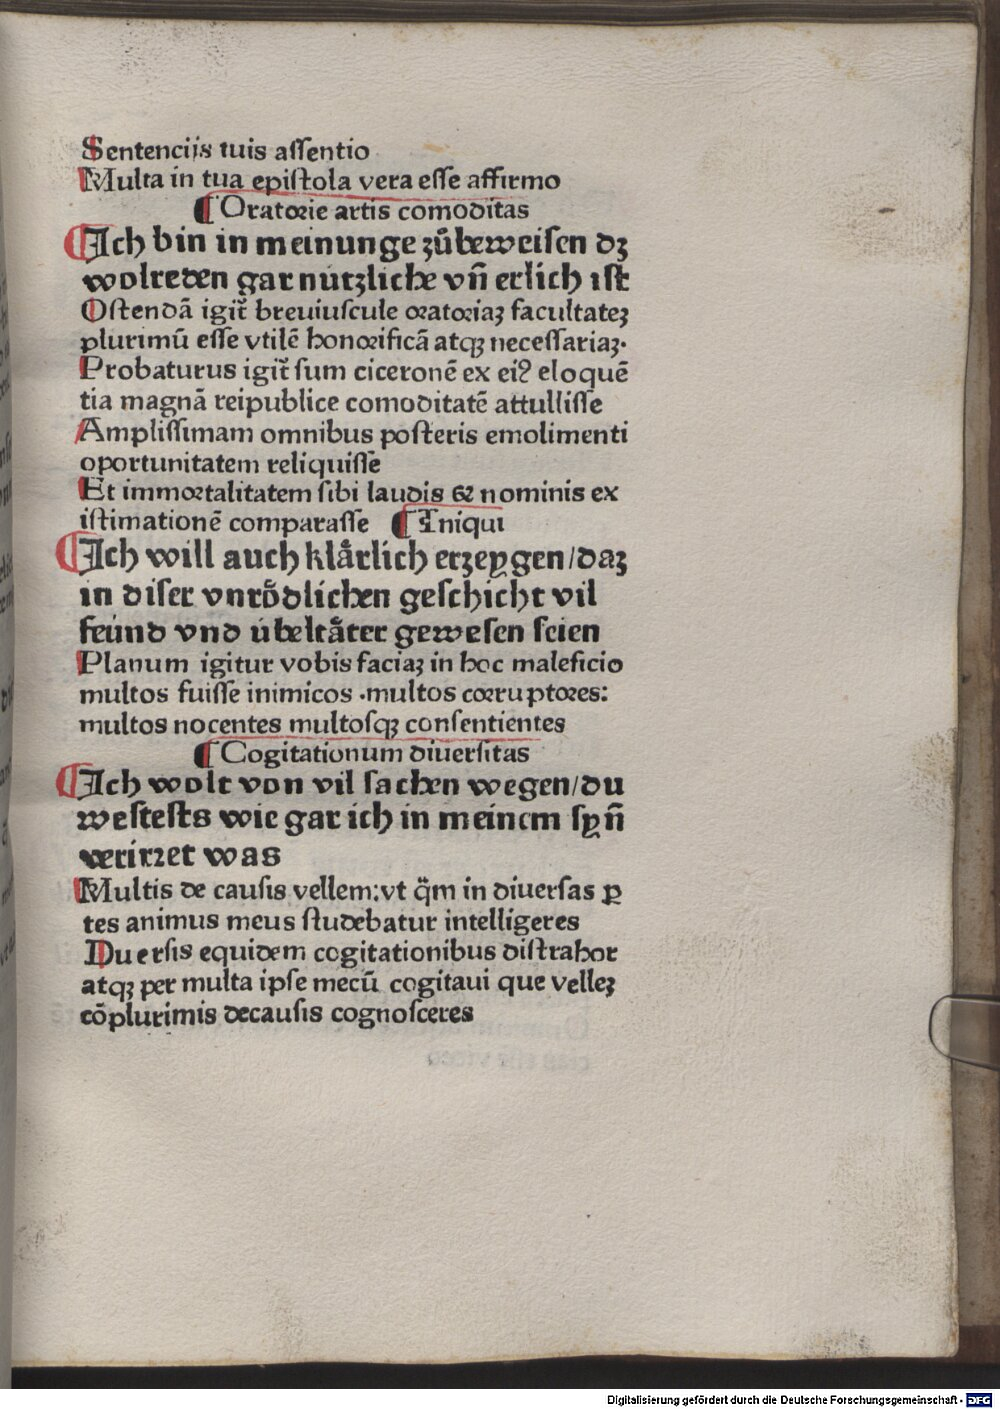 Sentenciis tuis aſſentio
Multa in tua epiſtola vera eſſe affirmo
¶ Oratorie artis comoditas
¶ Ich bin in meinunge zůbeweiſen dꝫ
wolreden gar nützliche vñ erlich iſt
Oſtendā igit̄ breuiuſcule oratoriaꝫ facultateꝫ
plurimū eſſe vtilē honorificā atqꝫ neceſſariaꝫ·
Probaturus igit̄ ſum ciceronē ex eiꝰ eloquē
tia magnā reipublice comoditatē attulliſſe
Ampliſſimam omnibus poſteris emolimenti
oportunitatem reliquiſſe
Et immortalitatem ſibi laudis & nominis ex
iſtimationē comparaſſe ¶ Iniqui
¶ Ich will auch klaͤrlich erzeygen/daꝫ
in diſer vnroͤdlichen geſchicht vil
feünd vnd übeltaͤter geweſen ſeien
Planum igitur vobis faciaꝫ in hoc maleficio
multos fuiſſe inimicos ·multos corruptores:
multos nocentes multoſqꝫ conſentientes
¶ Cogitationum diuerſitas
¶ Ich wolt von vil ſachen wegen/du
weſteſts wie gar ich in meinem ſyñ
verirret was
Multis de cauſis vellem:vt q̈m in diuerſas ꝑ
tes animus meus ſtudebatur intelligeres
Duerſis equidem cogitationibus diſtrahor
atqꝫ per multa ipſe mecū cogitaui que velleꝫ
cōplurimis decauſis cognoſceres
Digitalisierung gefördert durch die Deutsche Forschungsgemeinschaft - DFG